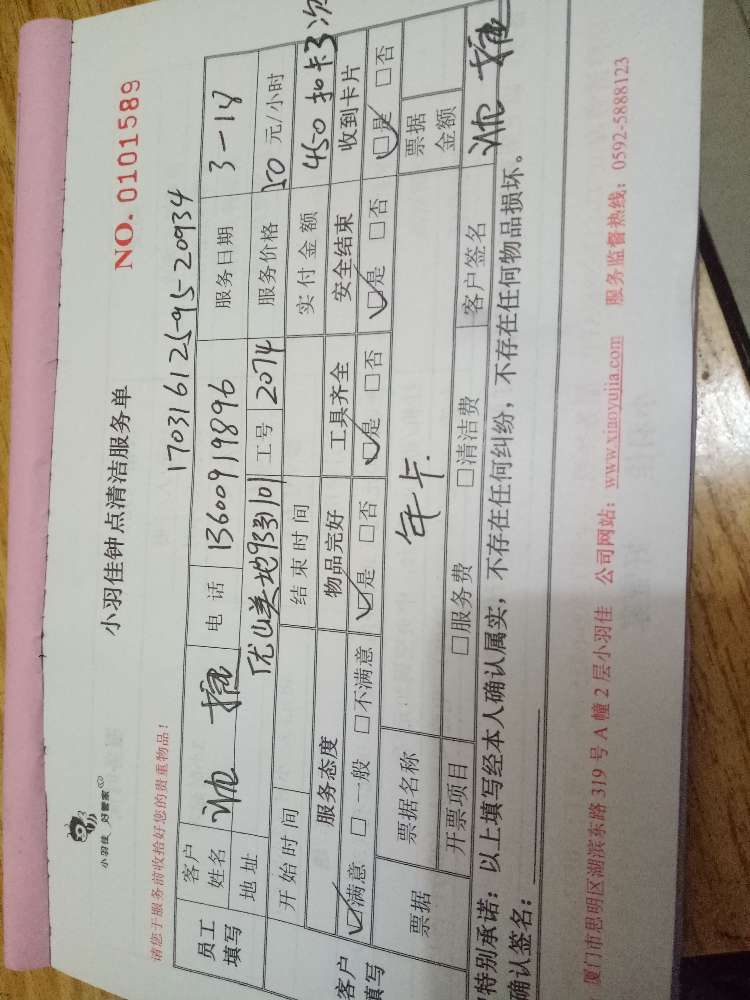 小羽佳 好管家
小羽佳钟点清洁服务单
NO. 0101589
请您于服务前收拾好您的贵重物品！
17031612595-20934
员工填写
客户姓名
电话 13600919896
服务日期 3-18
地址 优山美地93号101
工号 2074
服务价格 50 元/小时
开始时间
结束时间
实付金额 450 扣卡3次
客户填写
服务态度 物品完好 工具齐全 安全结束 收到卡片
☑满意 □一般 □不满意 ☑是 □否 ☑是 □否 ☑是 □否 ☑是 □否
票据
票据名称 年卡
票据金额
开票项目 □服务费 □清洁费
客户签名
特别承诺：以上填写经本人确认属实，不存在任何纠纷，不存在任何物品损坏。
确认签名：
厦门市思明区湖滨东路 319 号 A 幢 2 层小羽佳 公司网站：www.xiaoyujia.com 服务监督热线：0592-5888123